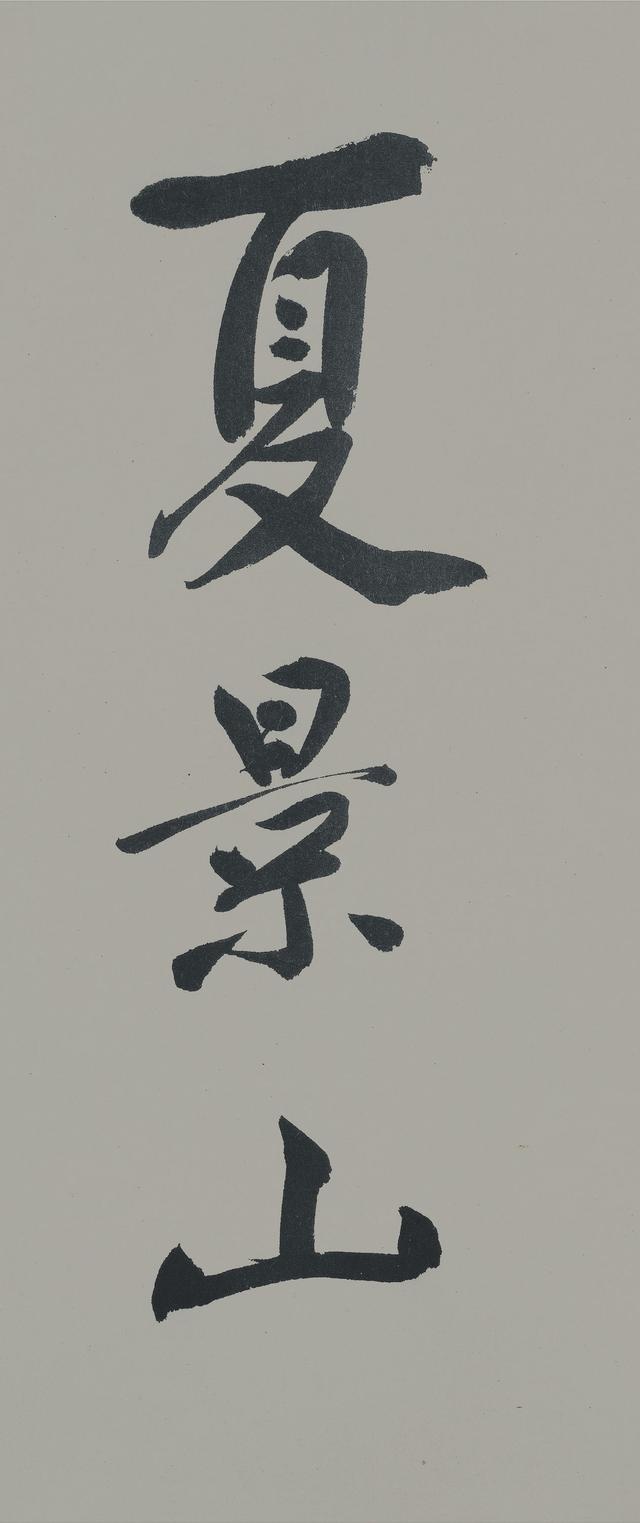 夏景山